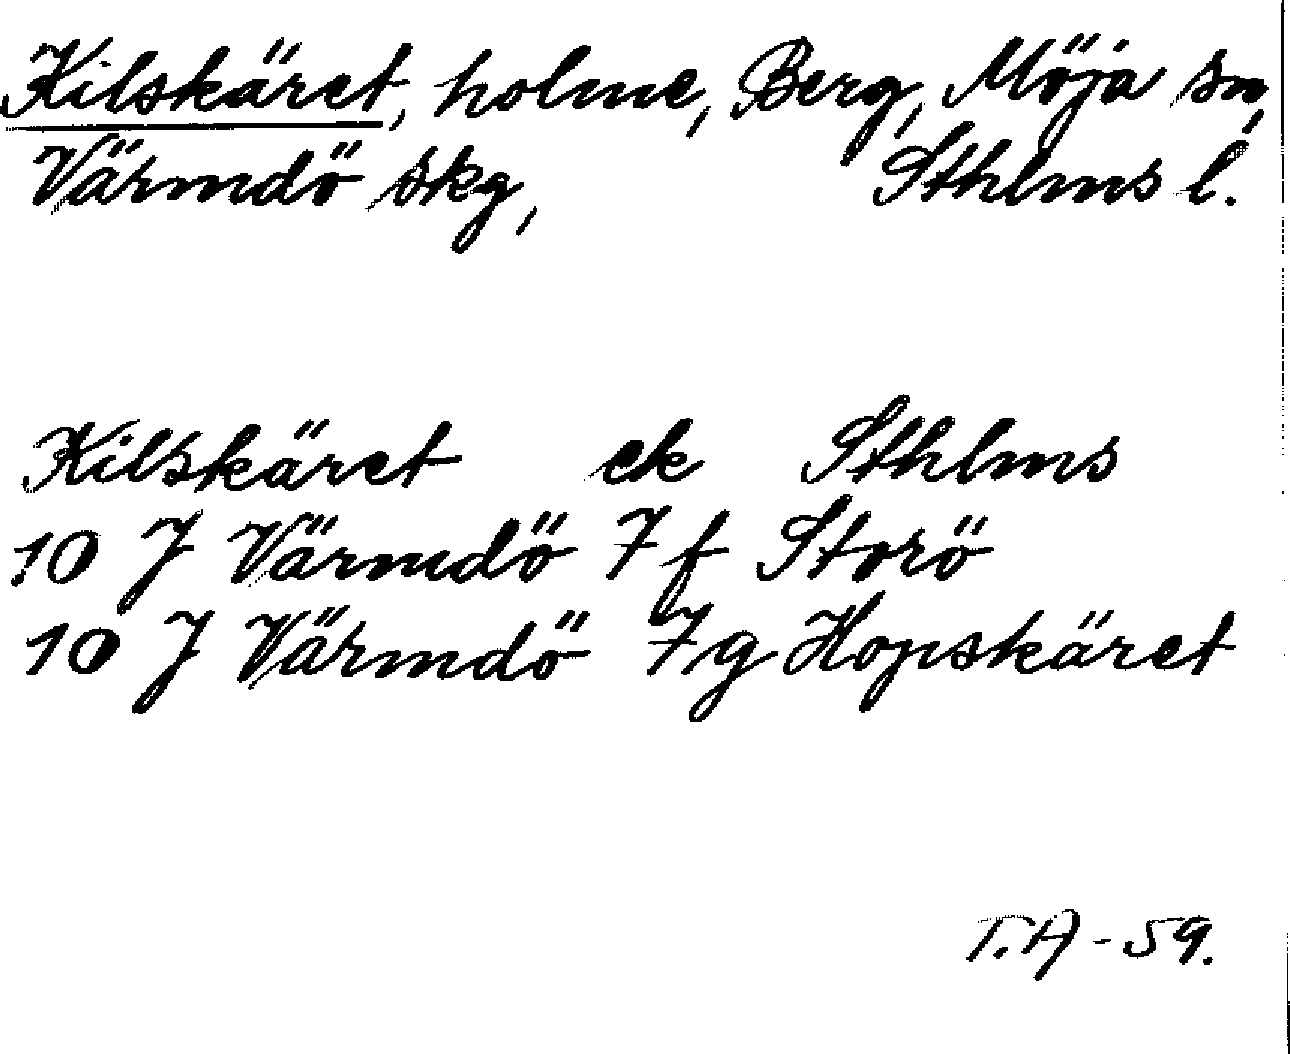 Kilskäret, holme, Berg, Möja sn,
Värmdö skg, Sthlms l.
Kilskäret ek Sthlms
10 J Värmdö 7f Storö
10 J Värmdö 7g Hopskäret
T.A - 59.